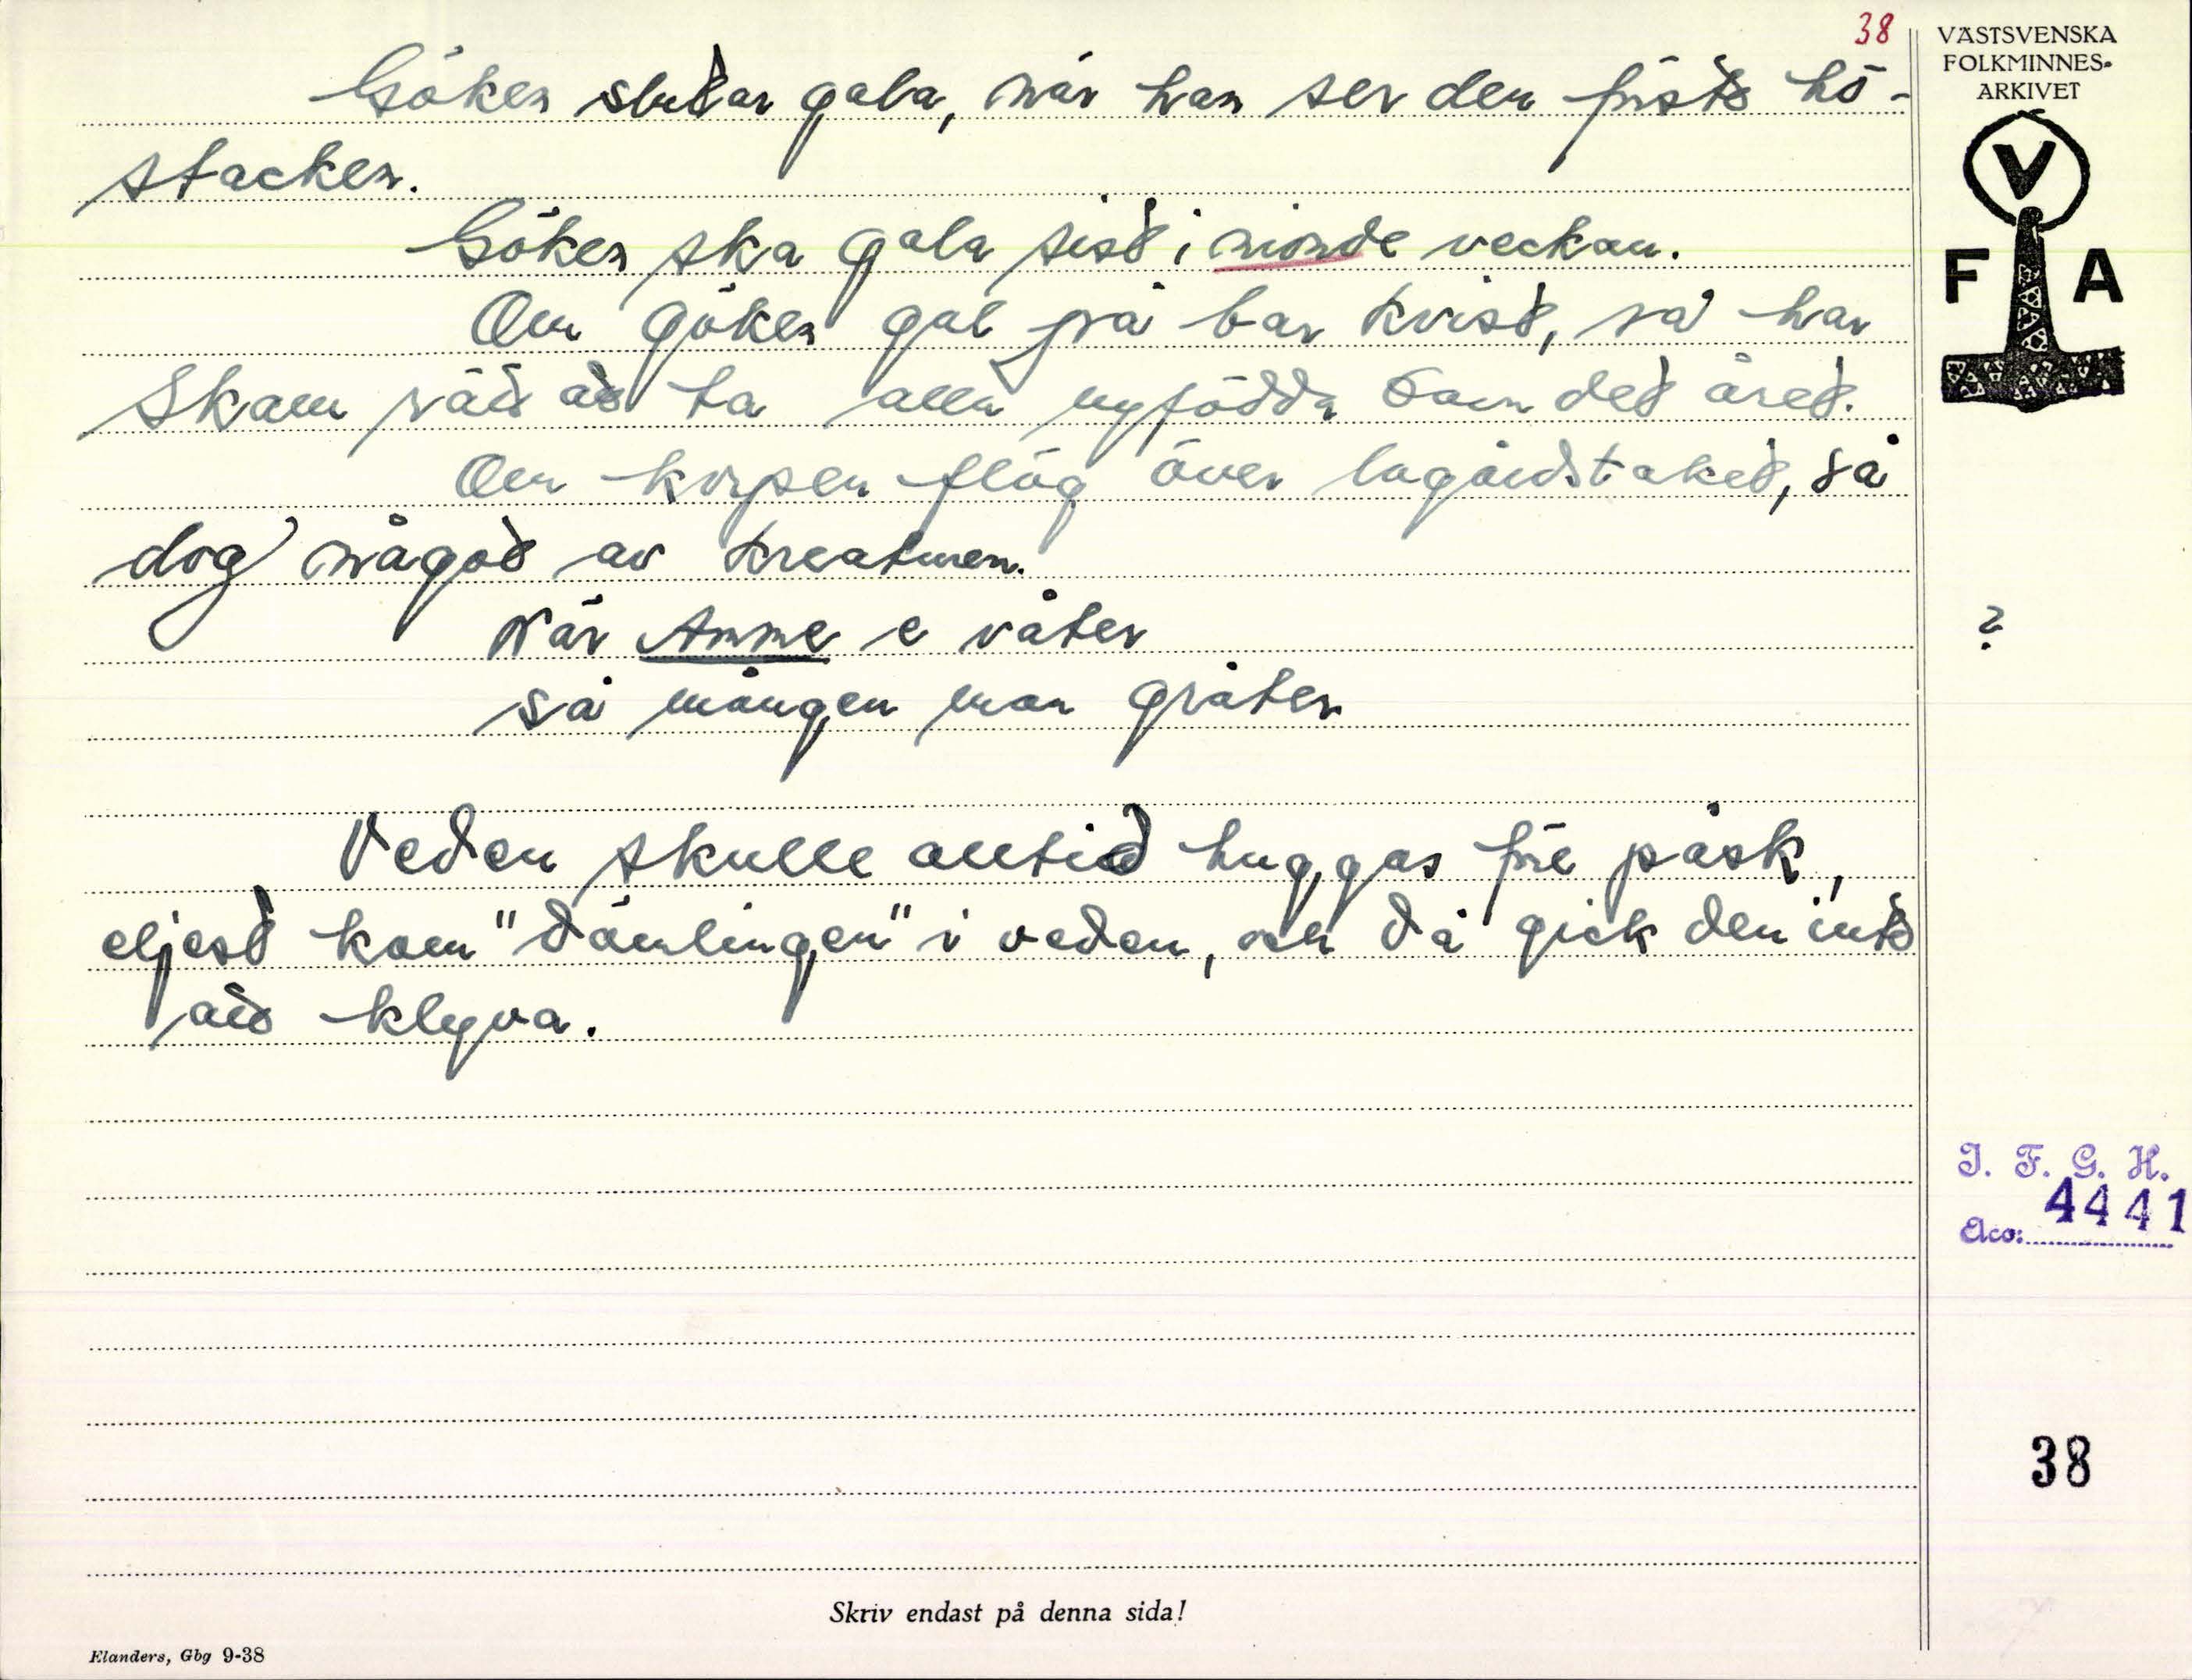 38
VÄSTSVENSKA
FOLKMINNES-
ARKIVET
V
F A
Göken slutar gala, när han ser den första hö-
stacken.
Göken ska gala sist i nionde veckan.
Om göken gol på bar kvist, så har
Skam råd att ta alla nyfödda barn det året.
Om korpen flög över lagårdstaket, så
dog något av kreaturen.
När Amme e våter
?
så mången man gråter
Veden skulle alltid huggas före påsk,
eljest kom "dämlingen" i veden, och då gick den inte
att klyva.
I. F. G. H.
Acc: 4441
38
Skriv endast på denna sida!
Elanders, Gbg 9-38